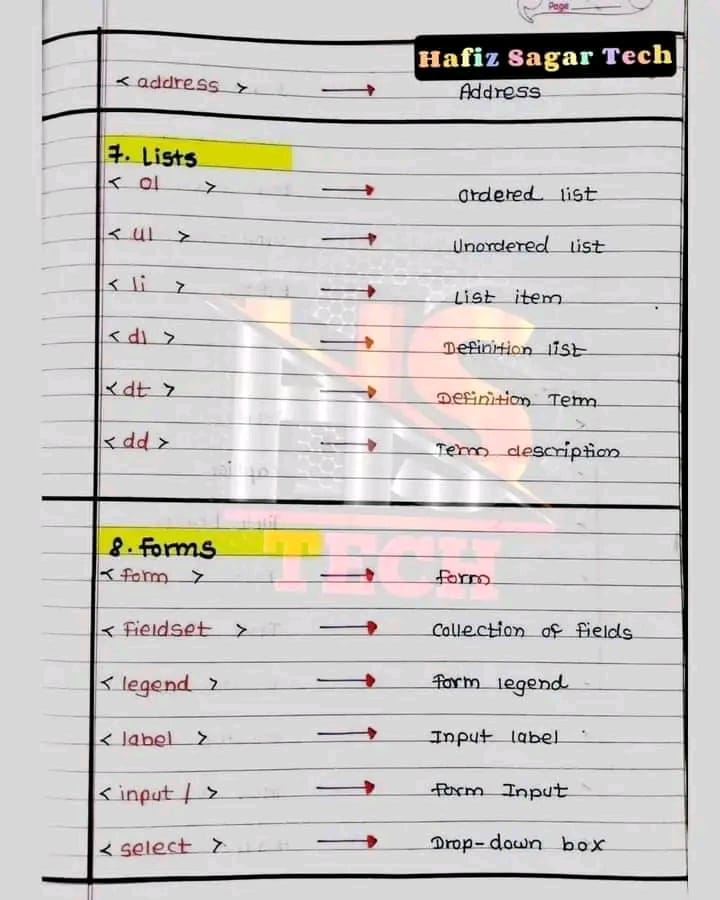 Page
Hafiz Sagar Tech
< address > → Address
7. Lists
< ol > → ordered list
< ul > → Unordered list
< li > → List item
< dl > → Definition list
< dt > → Definition Term
< dd > → Term description
HS
TECH
8. Forms
< form > → form
< fieldset > → Collection of fields
< legend > → form legend
< label > → Input label
< input / > → form Input
< select > → Drop-down box